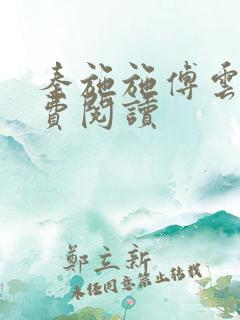 秦施施傅雲
費閱讀
鄭立新
未經同意禁止轉載